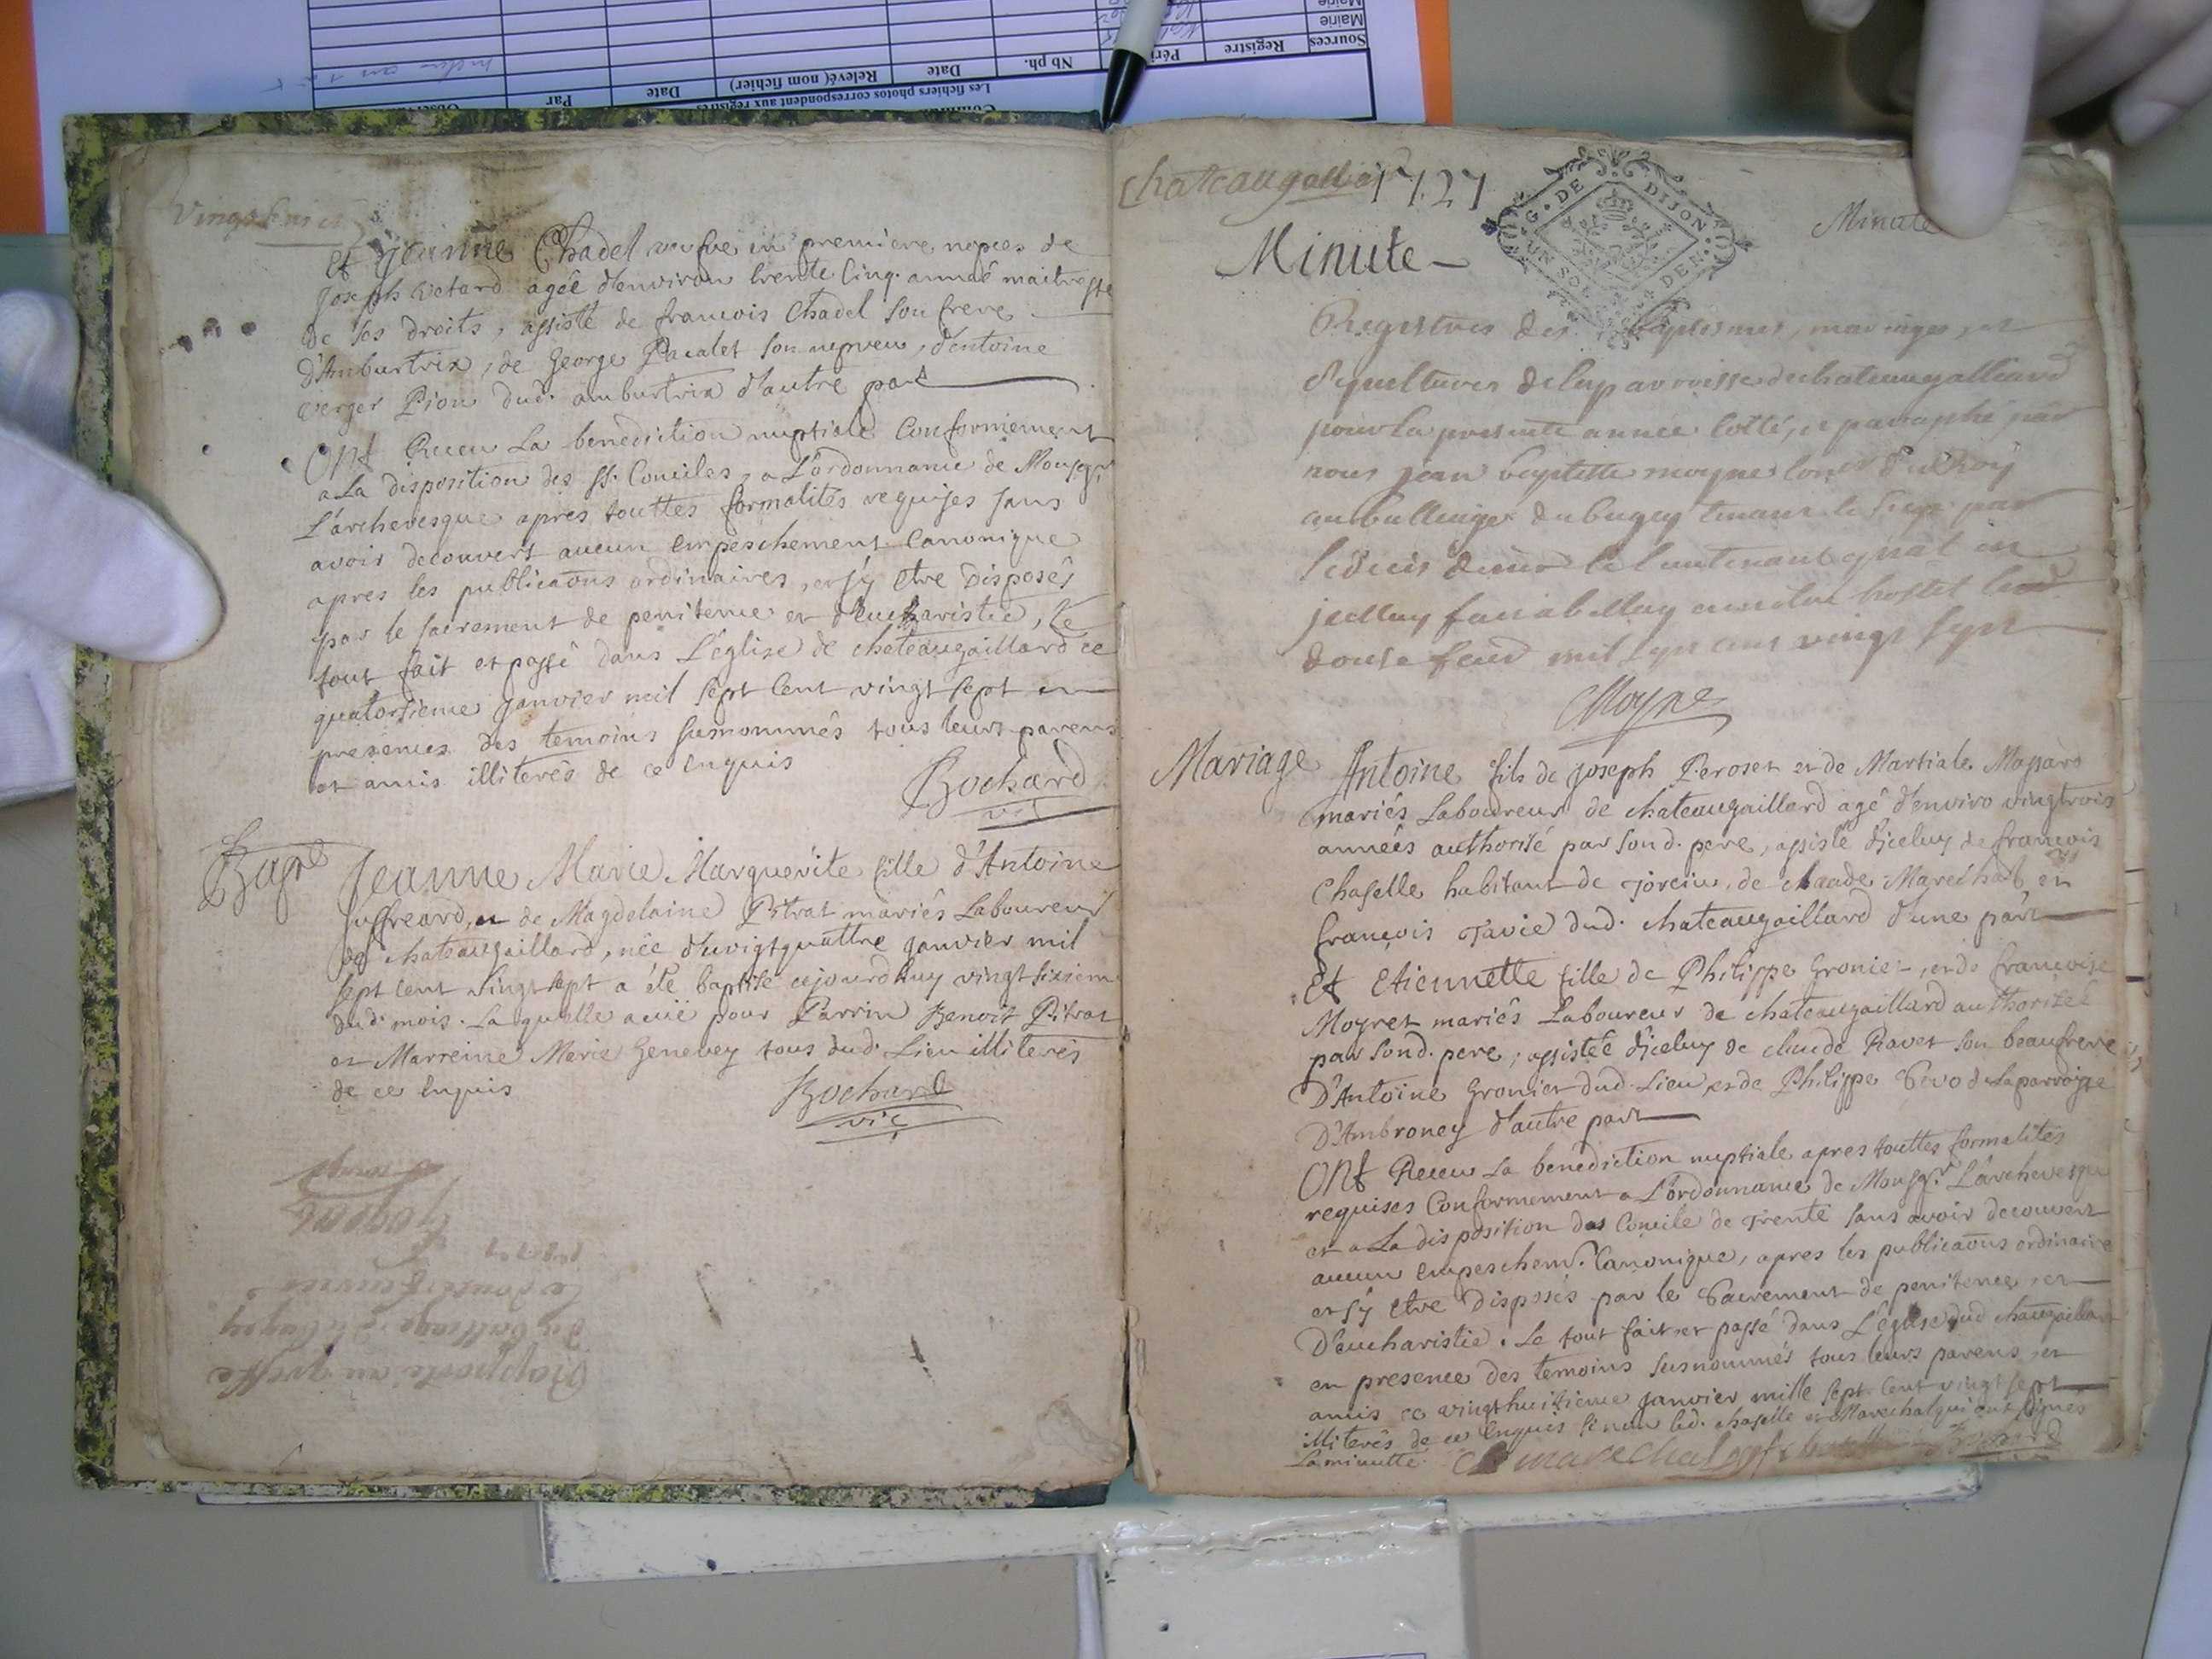 Et Jeanne Chadel veufve en premiere nopces de
Joseph Betard agée d'environ trente Cinq année maitresse
de ses droits, assisté de francois Chadel son frere
d'Amburtrix, de George Pacalet son nepveu, d'entoine
verger Pion dud. amburtrix d'autre part
Ont Receu La benediction nuptiale Conformement
a La disposition des SS. Conciles, a L'ordonnance de Monsgr
L'archevesque apres touttes formalités requises sans
avoir decouvert aucun empeschement Canonique
apres les publicaons ordinaires, et s'y etre Disposés
par le sacrement de penitence et d'eucharistie, Le
tout fait et passé dans L'église de chateaugaillard ce
quatorsieme janvier mil sept cent vingt sept en
presences des temoins susnommés tous leurs parens
et amis illiterés de ce enquis
Bochard
vic
Bapt
Jeanne Marie Marguerite fille d'Antoine
Juffreard, et de Magdelaine Pitrat mariés Laboureur
de chateaugaillard, née d'uvigtquattre janvier mil
sept cent vingt sept a été baptisé cejourdhuy vingt sixiem
dud. mois. Laquelle a eüe pour Parrin Benoit Pitrat
et Marreine Marie Genevey tous dud. Lieu illiterés
de ce enquis
Bochard
vic
Rapporté au greffe
du balliage du bugey
Le douse feuvrier
chateaugalliar 1727
G. DE DIJON
UN SOL DEN.
Minute
Minute
Registres des baptesmes, mariages, et
sepultures de la parroisse de chateaugalliard
pour la presente année cotté, et paraphé par
nous jean baptiste moyne Conser du Roy
au balliage du bugey tenant le siege par
le deces de mr le lieutenant gnal en
icelluy fait a belley en notre hostel led
douse feuvr mil sept cent vingt sept
Moyne
Mariage
Antoine fils de Joseph Peroset et de Martiale Massard
mariés Laboureur de chateaugaillard agé d'enviro vingtrois
années authorisé par sond. pere, assisté d'jceluy de francois
Chaselle habitant de Torcieu, de claude Marechal, et
francois Tavie dud. chateaugaillard d'une part
Et Etiennette fille de Philippe Gronier, et de francoise
Moyret mariés Laboureur de chateaugaillard authorisée
par sond. pere, assistée d'jceluy de claude Ravet son beaufrere
D'Antoine Gronier dud. Lieu, et de Philippe de La parroisse
D'Ambroney d'autre part
Ont Receu La benediction nuptiale apres touttes formalités
requises Conformement a L'ordonnance de Monsgr. L'archevesque
et a La disposition des Concile de Trente sans avoir decouvert
aucun empeschemt. Canonique, apres les publicaons ordinaire
et s'y etre Disposés par le Sacrement de penitence, et
D'eucharistie. Le tout fait et passé dans L'église dud chaugaillard
en presence des temoins susnommés tous leurs parens, et
amis ce vingthuitieme janvier mille sept cent vingt sept
illiterés de ce enquis sinon led. chaselle et Marechal qui ont signés
La minutte. marechal